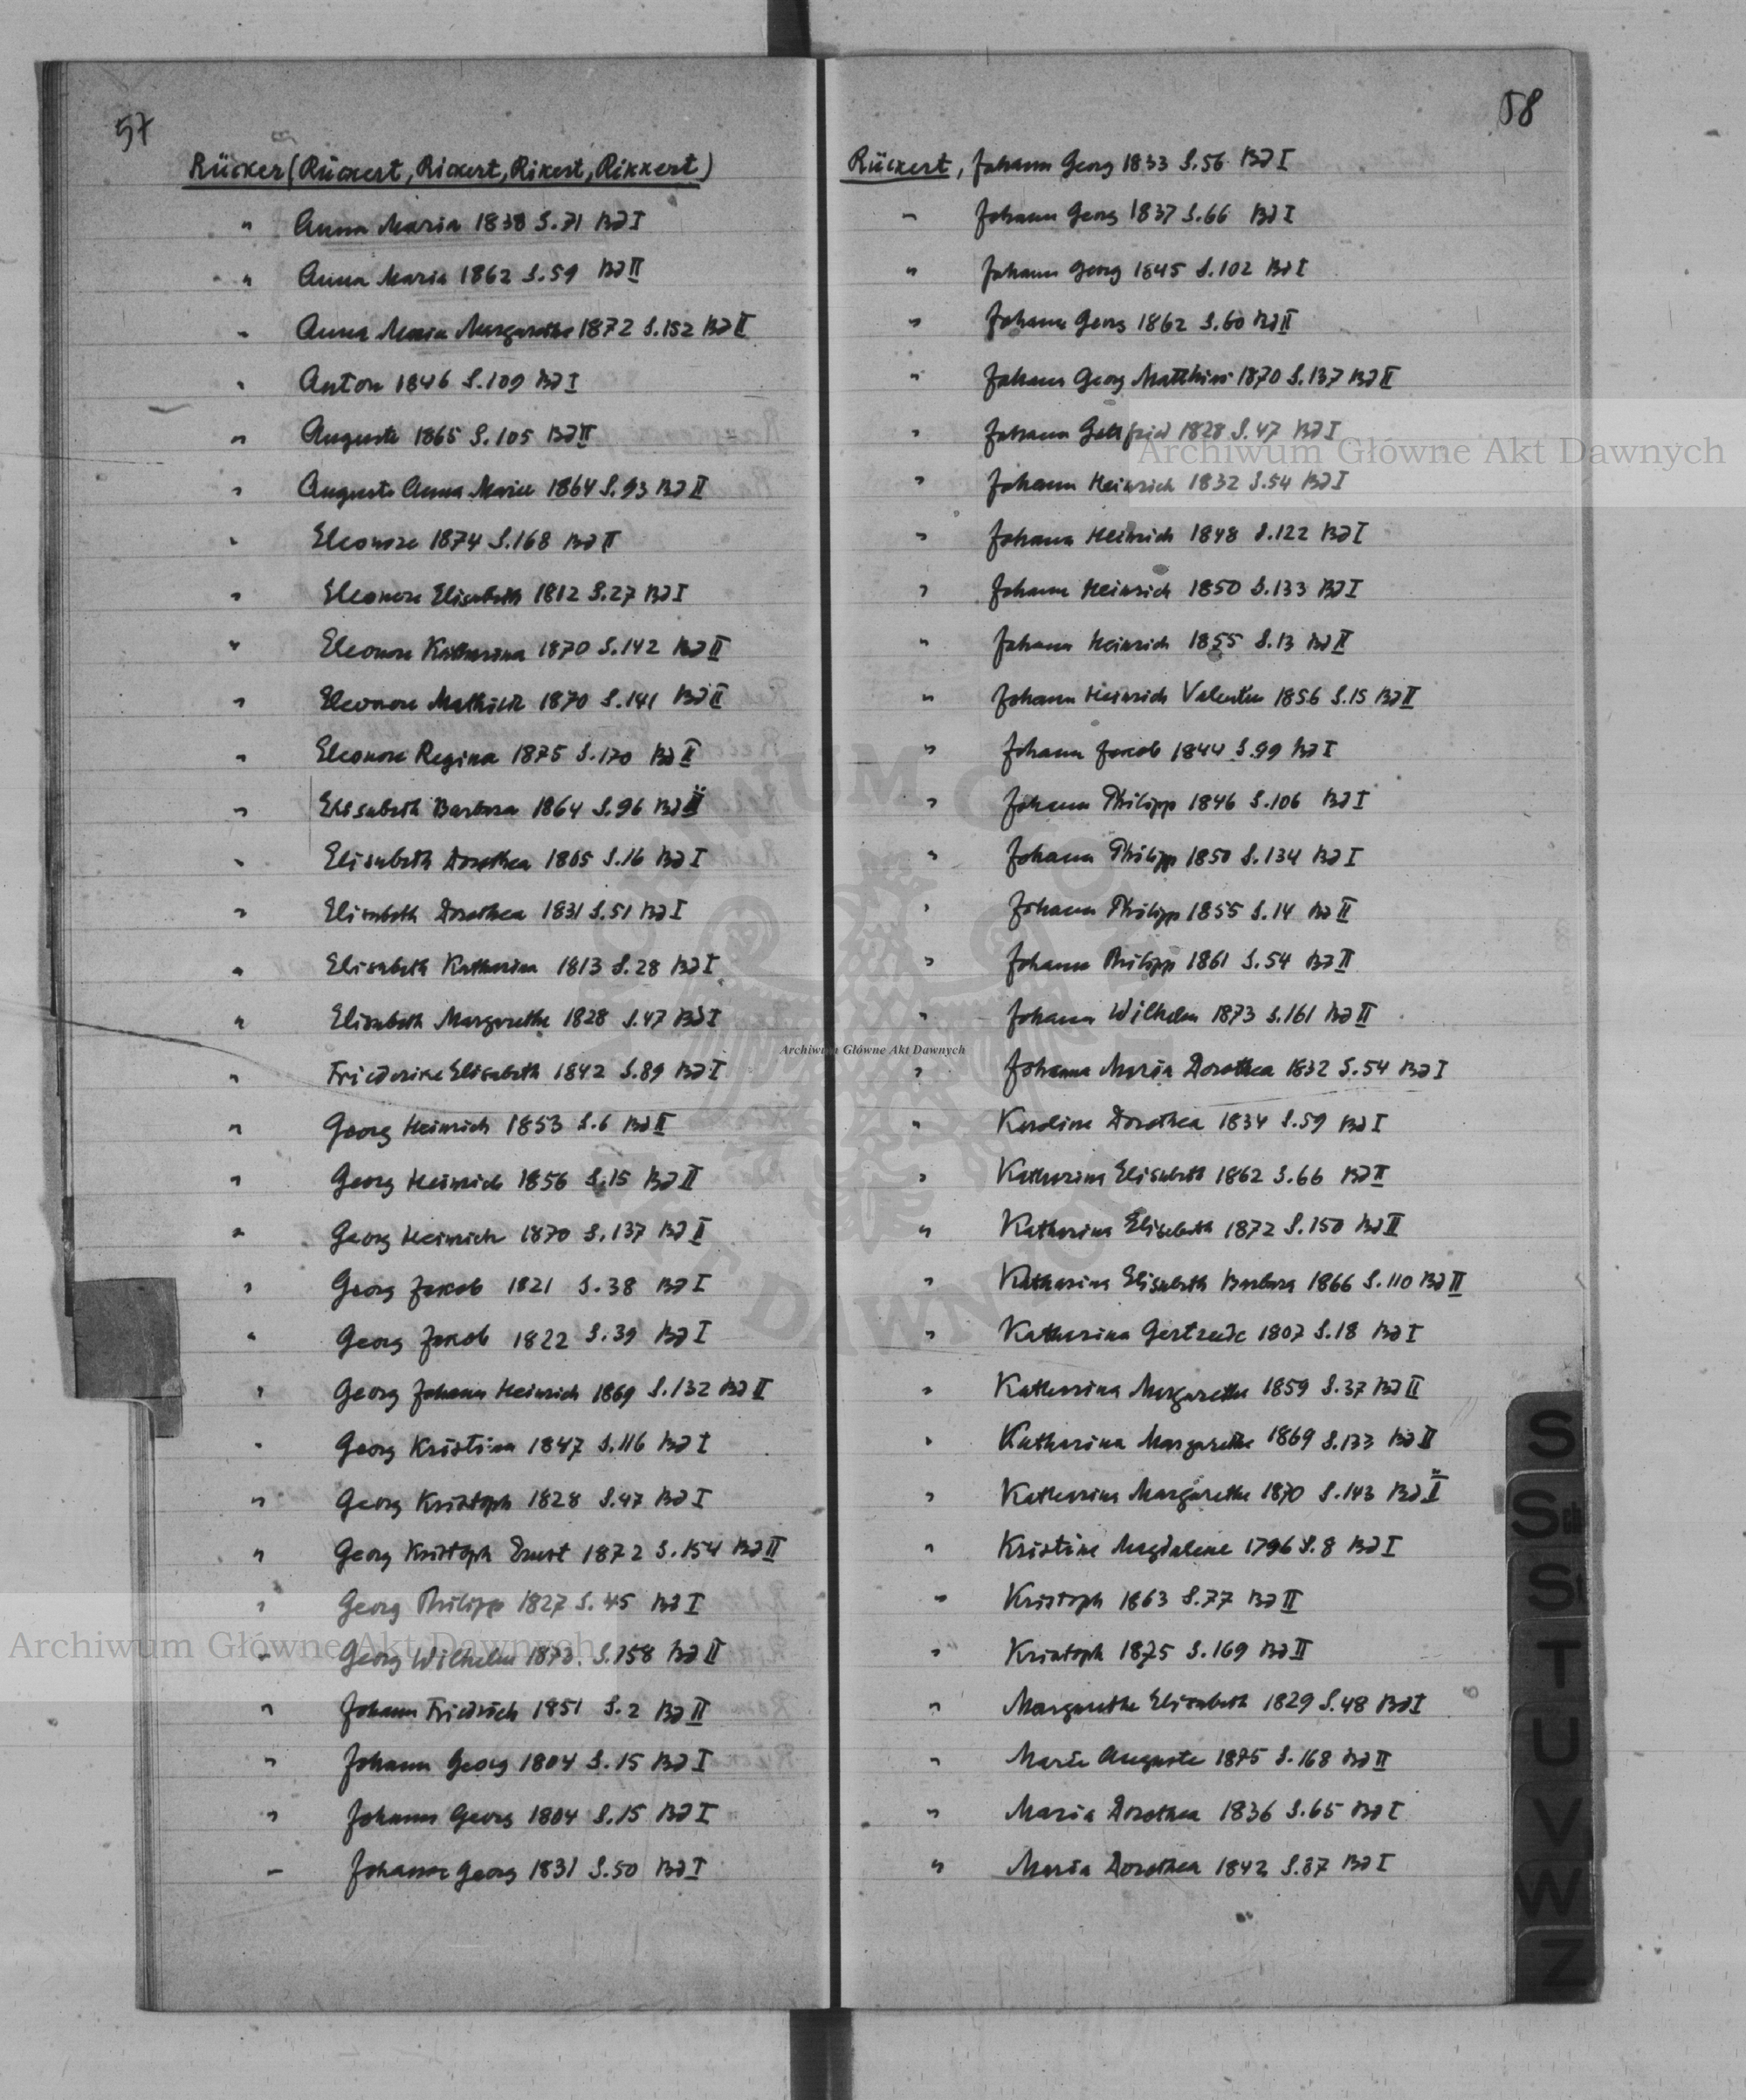 57
Rücker (Rückert, Rickert, Rikert, Rikkert)
" Anna Maria 1838 S.71 Bd I
" Anna Maria 1862 S.59 Bd II
" Anna Maria Margarethe 1872 S.152 Bd II
" Anton 1846 S.109 Bd I
" Auguste 1865 S.105 Bd II
" Auguste Anna Marie 1864 S.93 Bd II
" Eleonore 1874 S.168 Bd II
" Eleonore Elisabeth 1812 S.27 Bd I
" Eleonore Katharina 1870 S.142 Bd II
" Eleonore Mathilde 1870 S.141 Bd II
" Eleonore Regina 1875 S.170 Bd II
" Elisabeth Barbara 1864 S.96 Bd II
" Elisabeth Dorothea 1805 S.16 Bd I
" Elisabeth Dorothea 1831 S.51 Bd I
" Elisabeth Katharina 1813 S.28 Bd I
" Elisabeth Margarethe 1828 S.47 Bd I
" Friederike Elisabeth 1842 S.89 Bd I
" Georg Heinrich 1853 S.6 Bd II
" Georg Heinrich 1856 S.15 Bd II
" Georg Heinrich 1870 S.137 Bd II
" Georg Jakob 1821 S.38 Bd I
" Georg Jakob 1822 S.39 Bd I
" Georg Johann Heinrich 1869 S.132 Bd II
" Georg Kristian 1847 S.116 Bd I
" Georg Kristoph 1828 S.47 Bd I
" Georg Kristoph Ernst 1872 S.154 Bd II
" Georg Philipp 1827 S.45 Bd I
" Georg Wilhelm 1873 S.158 Bd II
" Johann Friedrich 1851 S.2 Bd II
" Johann Georg 1804 S.15 Bd I
" Johann Georg 1804 S.15 Bd I
" Johann Georg 1831 S.50 Bd I
58
Rückert, Johann Georg 1833 S.56 Bd I
" Johann Georg 1837 S.66 Bd I
" Johann Georg 1845 S.102 Bd I
" Johann Georg 1862 S.60 Bd II
" Johann Georg Matthias 1870 S.137 Bd II
" Johann Gottfried 1828 S.47 Bd I
" Johann Heinrich 1832 S.54 Bd I
" Johann Heinrich 1848 S.122 Bd I
" Johann Heinrich 1850 S.133 Bd I
" Johann Heinrich 1855 S.13 Bd II
" Johann Heinrich Valentin 1856 S.15 Bd II
" Johann Jakob 1844 S.99 Bd I
" Johann Philipp 1846 S.106 Bd I
" Johann Philipp 1850 S.134 Bd I
" Johann Philipp 1855 S.14 Bd II
" Johann Philipp 1861 S.54 Bd II
" Johann Wilhelm 1873 S.161 Bd II
" Johanna Maria Dorothea 1832 S.54 Bd I
" Karoline Dorothea 1834 S.59 Bd I
" Katharina Elisabeth 1862 S.66 Bd II
" Katharina Elisabeth 1872 S.150 Bd II
" Katharina Elisabeth Barbara 1866 S.110 Bd II
" Katharina Gertrude 1807 S.18 Bd I
" Katharina Margaretha 1859 S.37 Bd II
" Katharina Margarethe 1869 S.133 Bd II
" Katharina Margarethe 1870 S.143 Bd II
" Kristine Magdalene 1796 S.8 Bd I
" Kristoph 1863 S.77 Bd II
" Kristoph 1875 S.169 Bd II
" Margarethe Elisabeth 1829 S.48 Bd I
" Marie Auguste 1875 S.168 Bd II
" Maria Dorothea 1836 S.65 Bd I
" Maria Dorothea 1842 S.87 Bd I
S
Sch
St
T
U
V
W
Z
Archiwum Główne Akt Dawnych
Archiwum Główne Akt Dawnych
Archiwum Główne Akt Dawnych